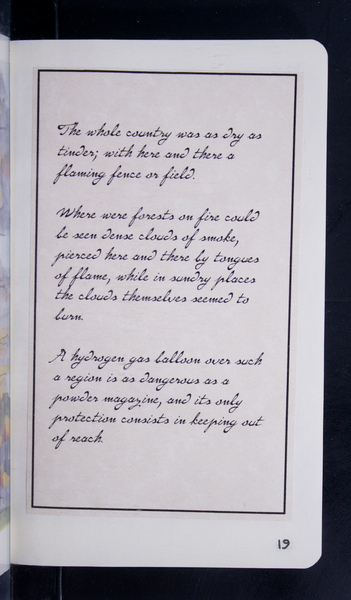 The whole country was as dry as
tinder; with here and there a
flaming fence or field.
Where were forests on fire could
be seen dense clouds of smoke,
pierced here and there by tongues
of flame, while in sundry places
the clouds themselves seemed to
burn.
A hydrogen gas balloon over such
a region is as dangerous as a
powder magazine, and its only
protection consists in keeping out
of reach.
19